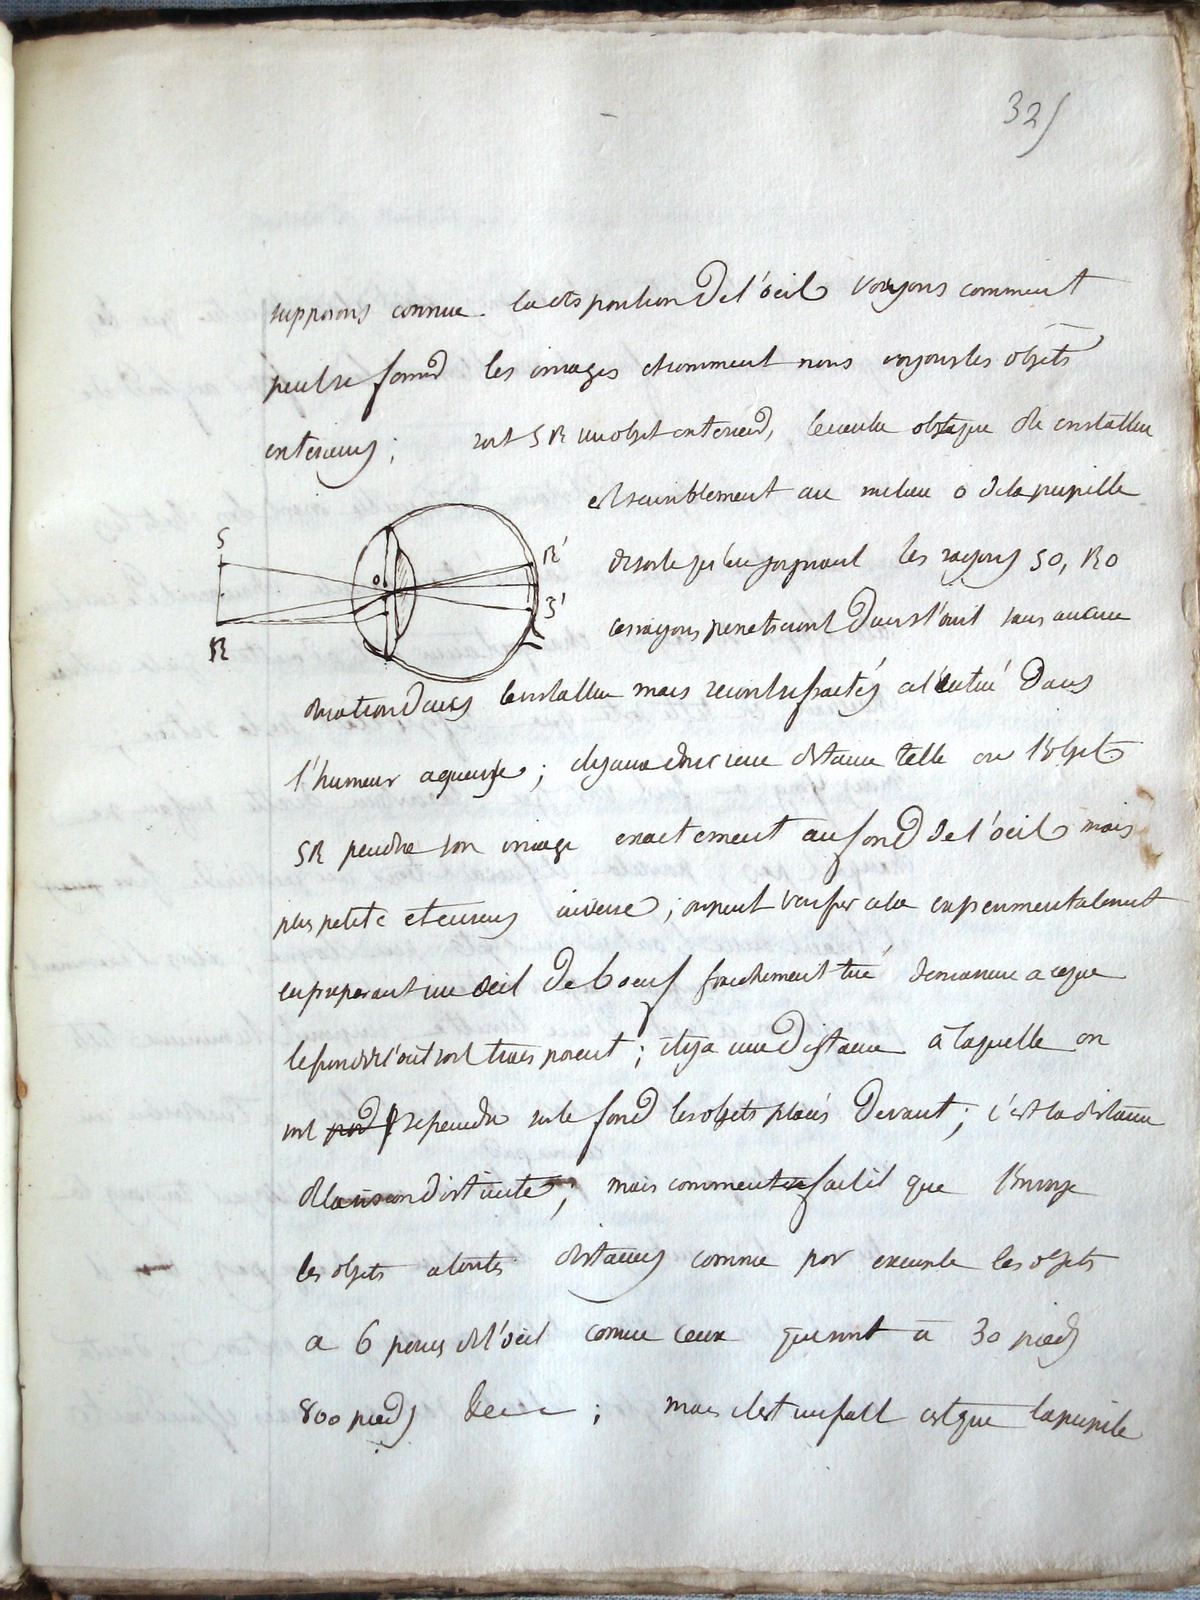 325
supposons connue la disposition de l'oeil voyons comment
peut se former les images et comment nous voyons les objets
exterieurs ; soit SR un objet exterieur, le centre optique du cristallin
est sensiblement au milieu o de la pupille
S
R'
o
desorte qu'en joignant les rayons SO, RO
S'
R
ces rayons penetreront dans l'oeil sans aucune
deviation dans le cristallin mais seront refractés a l'entré dans
l'humeur aqueuse ; il y aura donc une distance telle ou l'objet
SR peindra son image exactement au fond de l'oeil mais
plus petite et en sens inverse ; on peut verifier cela experimentalement
en preparant un oeil de boeuf fraichement tué de maniere a ce que
le fond de l'oeil soit transparent ; il y a une distance à laquelle on
voit se peindre sur le fond les objets placés devant ; c'est la distance
de la vision distincte ; mais comment se fait il que l'on voye
les objets a toutes distances comme par exemple les objets
a 6 pouces de l'oeil comme ceux qui sont à 30 pieds
800 pieds &c ; mais c'est un fait est que la pupile